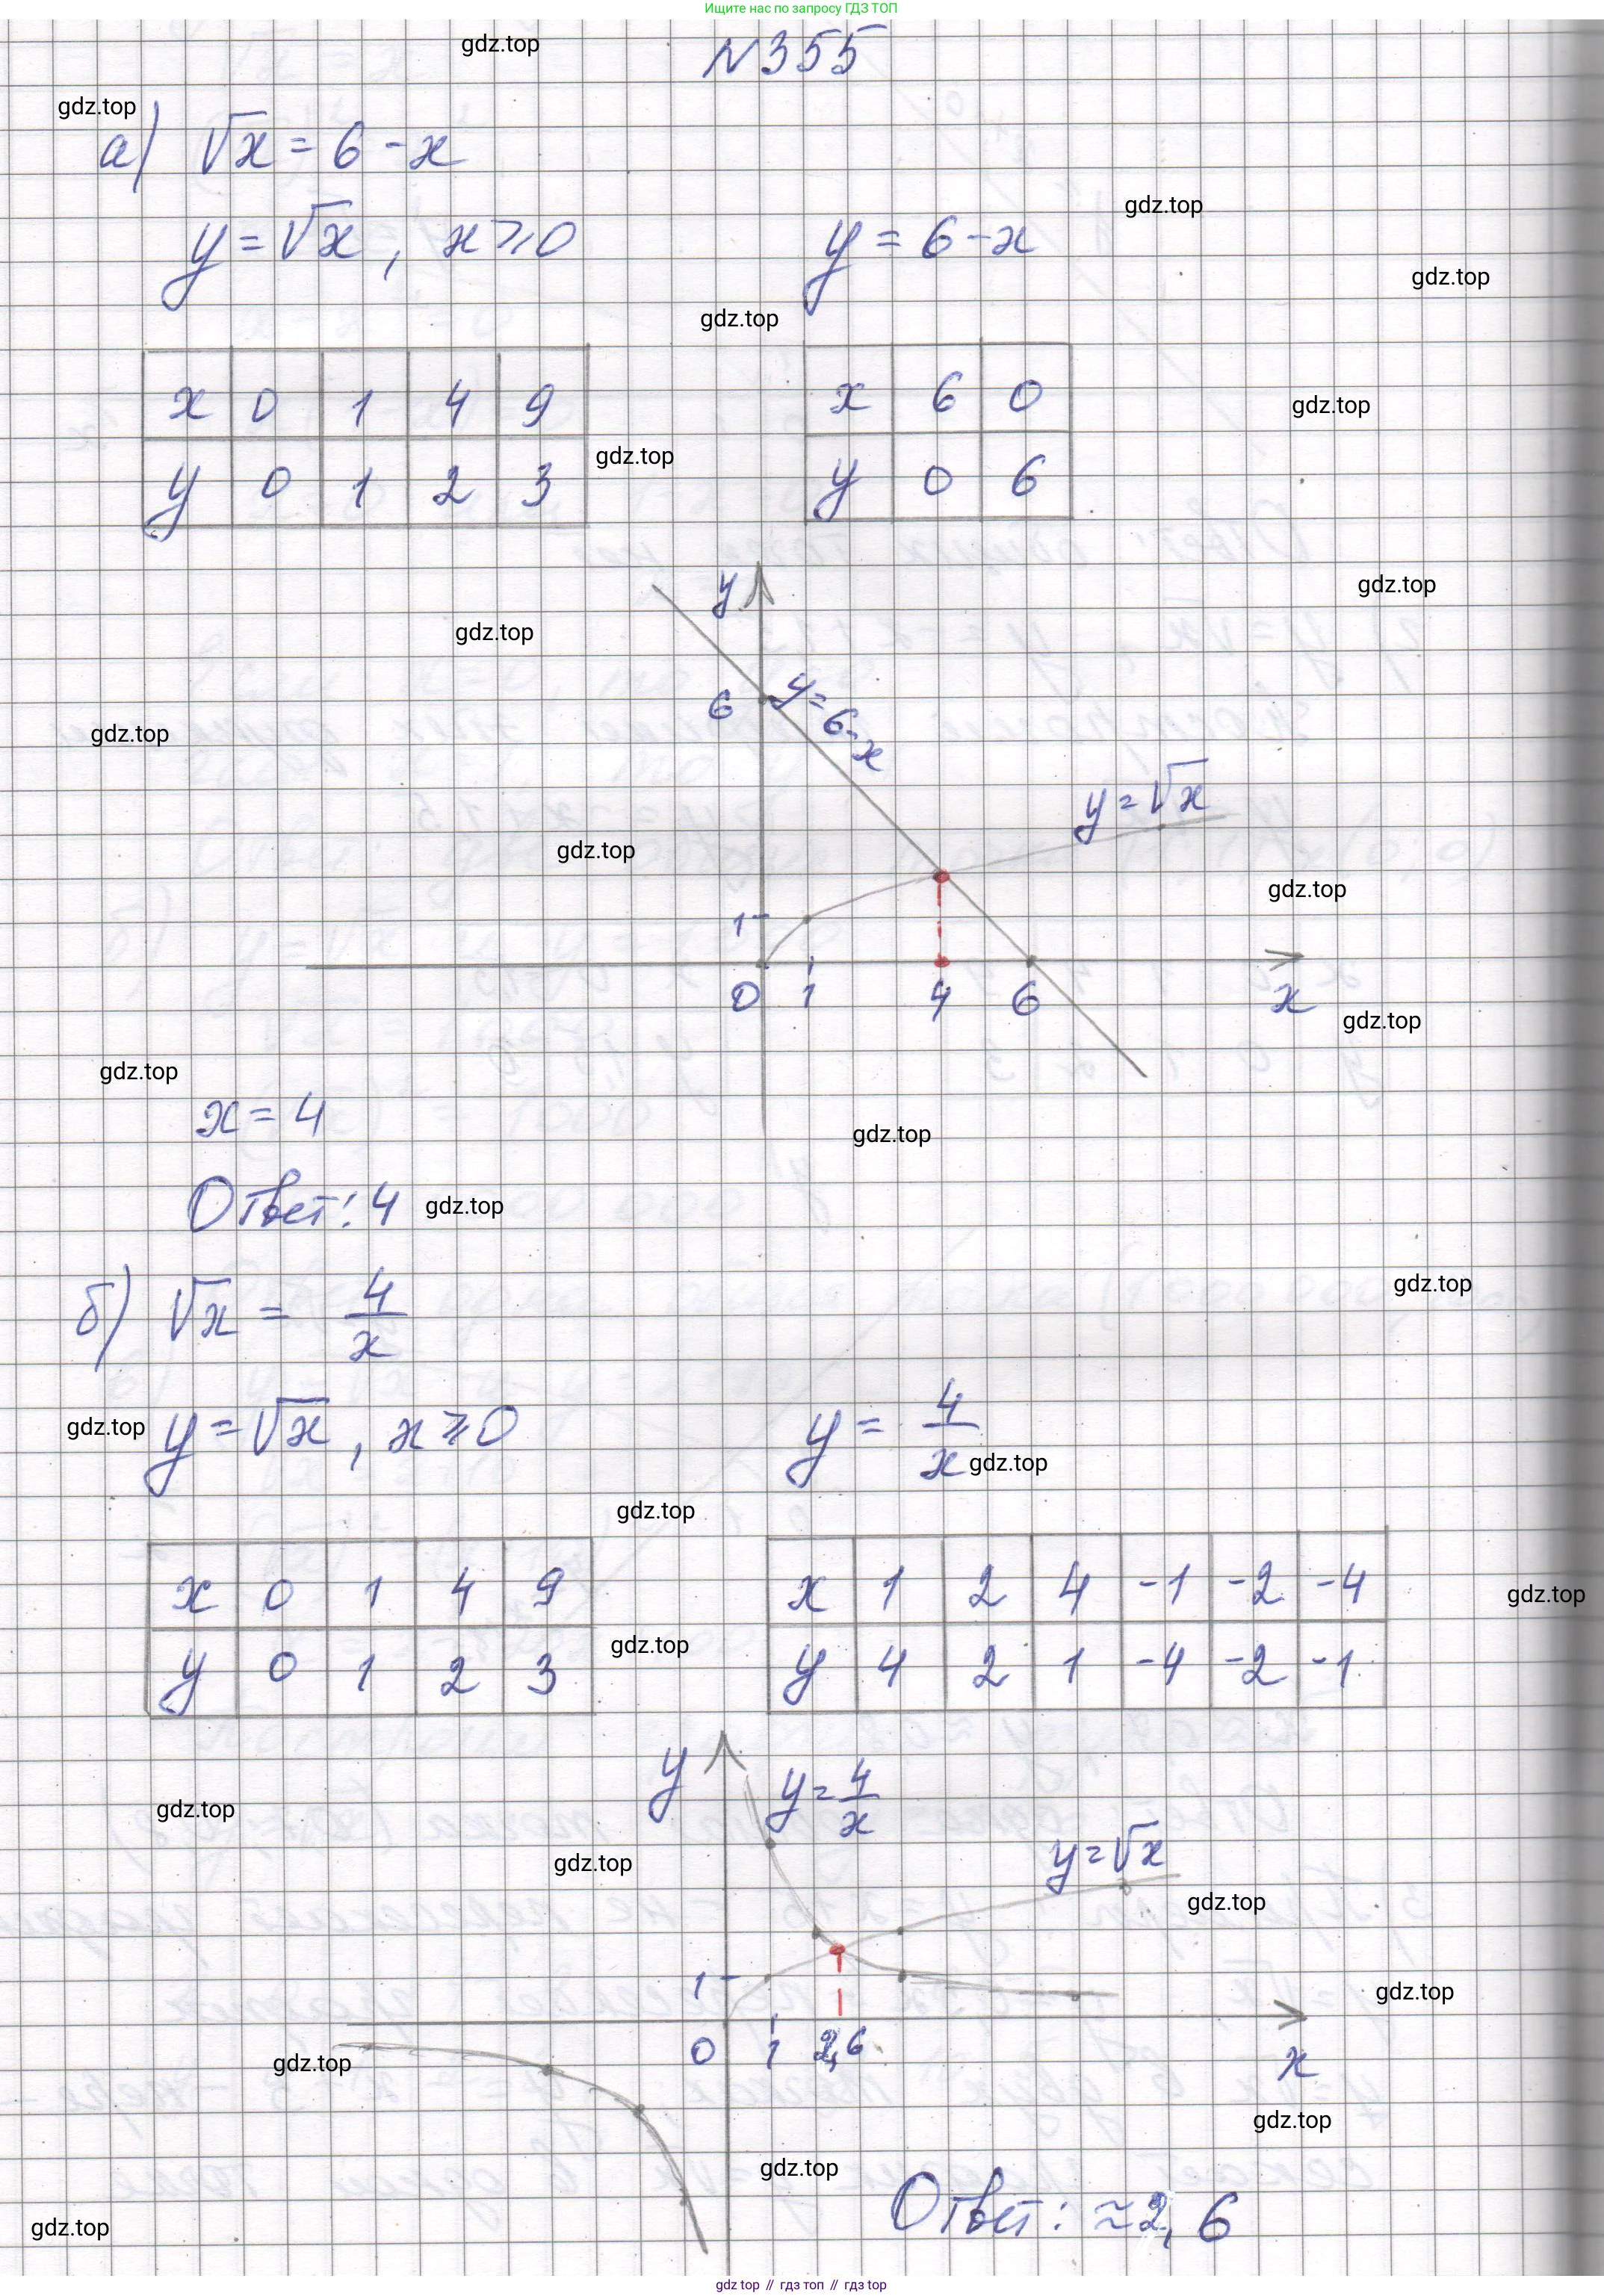 Ищите нас по запросу ГДЗ ТОП
gdz.top
N355
gdz.top
а) √x = 6 - x
gdz.top
y = √x, x ⩾ 0 y = 6 - x
gdz.top
gdz.top
x 0 1 4 9 x 6 0
gdz.top
y 0 1 2 3 y 0 6
gdz.top
y
gdz.top
gdz.top
6 y = 6 - x
gdz.top
y = √x
gdz.top
gdz.top
1
0 1 4 6 x
gdz.top
gdz.top
x = 4
gdz.top
Ответ: 4
gdz.top
б) √x = 4/x
gdz.top
y = √x, x ⩾ 0 y = 4/x
gdz.top
gdz.top
gdz.top
x 0 1 4 9 x 1 2 4 -1 -2 -4
gdz.top
y 0 1 2 3 y 4 2 1 -4 -2 -1
gdz.top
y y = 4/x
gdz.top
y = √x
gdz.top
gdz.top
1
gdz.top
0 1 2,6 x
gdz.top
gdz.top
gdz.top
Ответ: ≈2,6
gdz.top
gdz top // гдз топ // gdz top